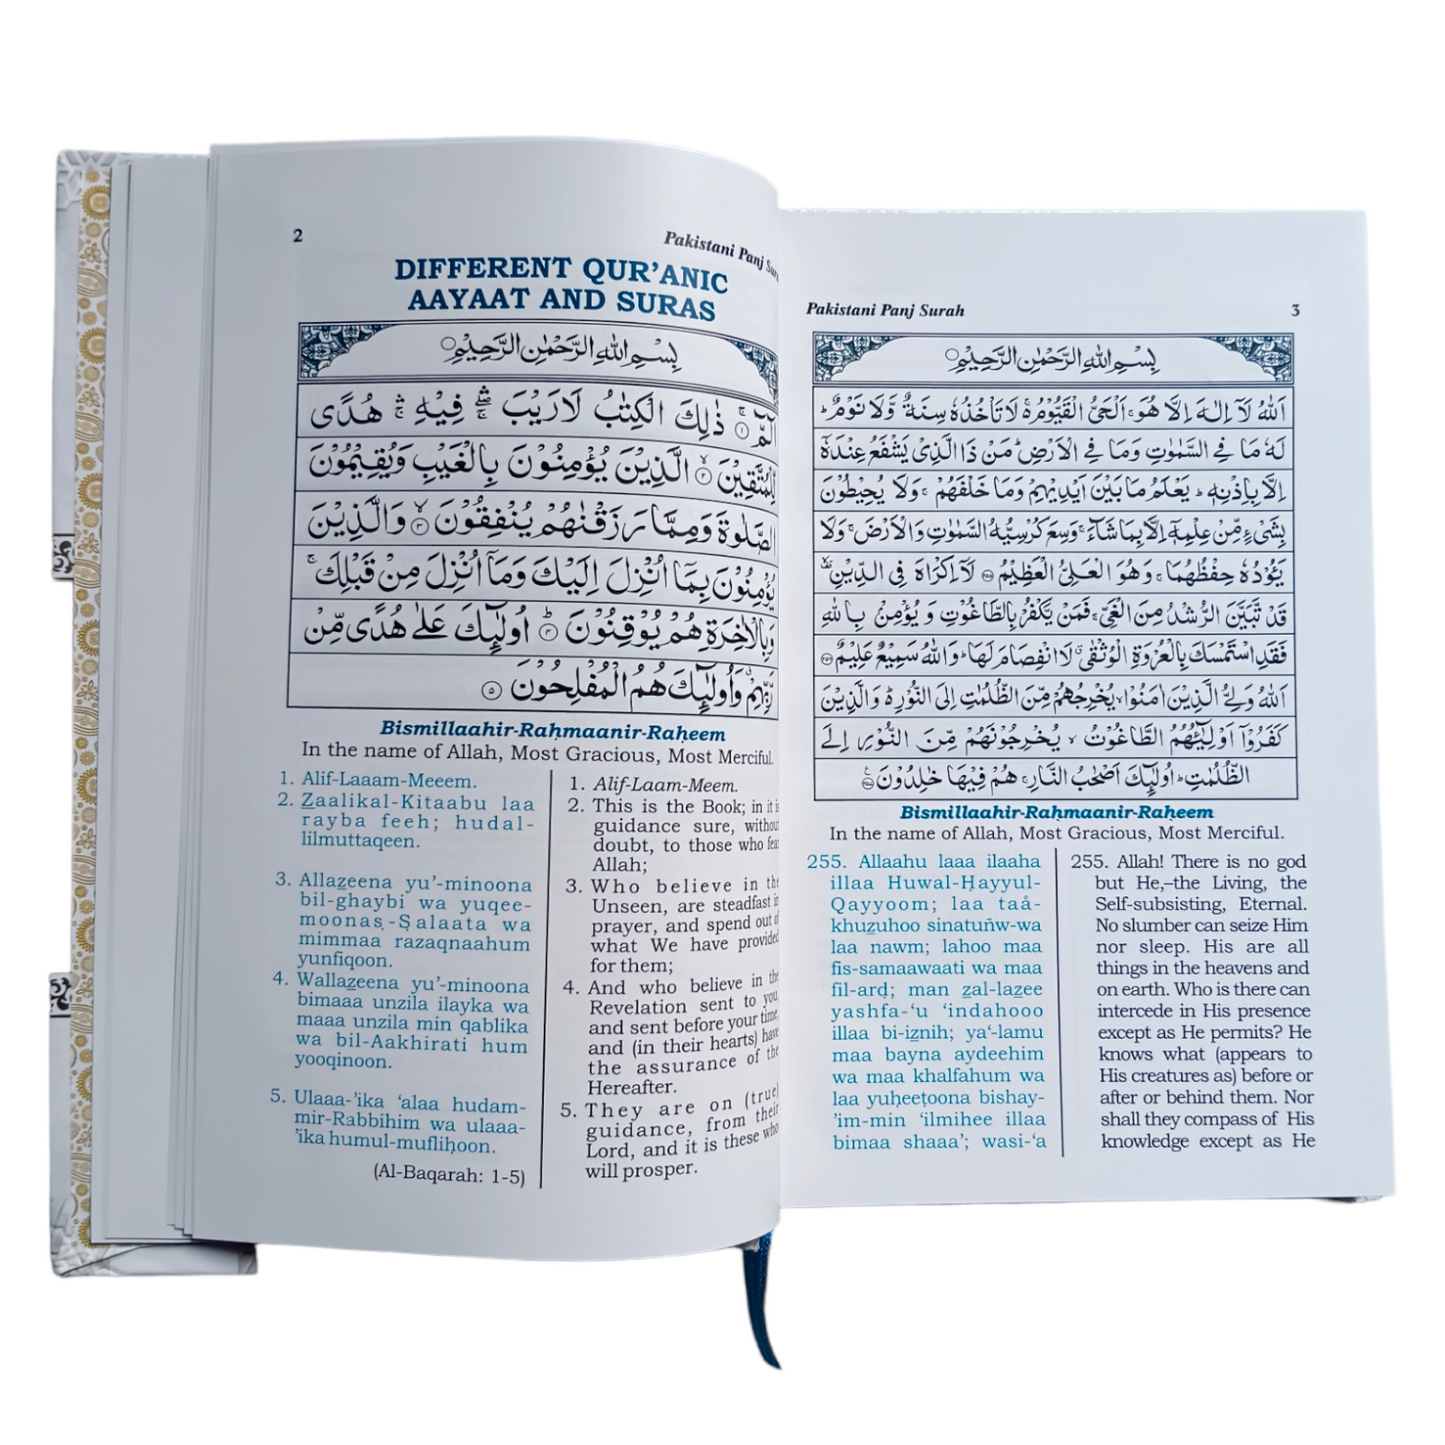 2
Pakistani Panj Surah
DIFFERENT QUR’ANIC
AAYAAT AND SURAS
بِسْمِ اللهِ الرَّحْمٰنِ الرَّحِيْمِ
الٓمّٓ ۚ۝۱ ذٰلِكَ الْكِتٰبُ لَا رَيْبَ ۛۖ فِيْهِ ۛۚ هُدًى
لِّلْمُتَّقِيْنَ ۙ۝۲ الَّذِيْنَ يُؤْمِنُوْنَ بِالْغَيْبِ وَيُقِيْمُوْنَ
الصَّلٰوةَ وَمِمَّا رَزَقْنٰهُمْ يُنْفِقُوْنَ ۙ۝۳ وَالَّذِيْنَ
يُؤْمِنُوْنَ بِمَآ اُنْزِلَ اِلَيْكَ وَمَآ اُنْزِلَ مِنْ قَبْلِكَ ۚ
وَبِالْاٰخِرَةِ هُمْ يُوْقِنُوْنَ ؕ۝۴ اُولٰٓئِكَ عَلٰى هُدًى مِّنْ
رَّبِّهِمْ ۗ وَاُولٰٓئِكَ هُمُ الْمُفْلِحُوْنَ ۝۵
Bismillaahir-Raḥmaanir-Raḥeem
In the name of Allah, Most Gracious, Most Merciful.
1. Alif-Laaam-Meeem.
2. Z̲aalikal-Kitaabu laa
rayba feeh; hudal-
lilmuttaqeen.
3. Allaz̲eena yu’-minoona
bil-ghaybi wa yuqee-
moonaṣ-Ṣalaata wa
mimmaa razaqnaahum
yunfiqoon.
4. Wallaz̲eena yu’-minoona
bimaaa unzila ilayka wa
maaa unzila min qablika
wa bil-Aakhirati hum
yooqinoon.
5. Ulaaa-’ika ‘alaa hudam-
mir-Rabbihim wa ulaaa-
’ika humul-mufliḥoon.
(Al-Baqarah: 1-5)
1. Alif-Laam-Meem.
2. This is the Book; in it is
guidance sure, without
doubt, to those who fear
Allah;
3. Who believe in the
Unseen, are steadfast in
prayer, and spend out of
what We have provided
for them;
4. And who believe in the
Revelation sent to you,
and sent before your time,
and (in their hearts) have
the assurance of the
Hereafter.
5. They are on (true)
guidance, from their
Lord, and it is these who
will prosper.
Pakistani Panj Surah
3
بِسْمِ اللهِ الرَّحْمٰنِ الرَّحِيْمِ
اَللهُ لَآ اِلٰهَ اِلَّا هُوَ ۚ اَلْحَيُّ الْقَيُّوْمُ ۚ۬ لَا تَاْخُذُهٗ سِنَةٌ وَّلَا نَوْمٌ ؕ
لَهٗ مَا فِي السَّمٰوٰتِ وَمَا فِي الْاَرْضِ ؕ مَنْ ذَا الَّذِيْ يَشْفَعُ عِنْدَهٗٓ
اِلَّا بِاِذْنِهٖ ؕ يَعْلَمُ مَا بَيْنَ اَيْدِيْهِمْ وَمَا خَلْفَهُمْ ۚ وَلَا يُحِيْطُوْنَ
بِشَيْءٍ مِّنْ عِلْمِهٖٓ اِلَّا بِمَا شَآءَ ۚ وَسِعَ كُرْسِيُّهُ السَّمٰوٰتِ وَالْاَرْضَ ۚ وَلَا
يَـُٔوْدُهٗ حِفْظُهُمَا ۚ وَهُوَ الْعَلِيُّ الْعَظِيْمُ ۝۲۵۵ لَآ اِكْرَاهَ فِي الدِّيْنِ ۙ
قَدْ تَّبَيَّنَ الرُّشْدُ مِنَ الْغَيِّ ۚ فَمَنْ يَّكْفُرْ بِالطَّاغُوْتِ وَيُؤْمِنْ بِاللهِ
فَقَدِ اسْتَمْسَكَ بِالْعُرْوَةِ الْوُثْقٰى ۗ لَا انْفِصَامَ لَهَا ؕ وَاللهُ سَمِيْعٌ عَلِيْمٌ ۝۲۵۶
اَللهُ وَلِيُّ الَّذِيْنَ اٰمَنُوْا ۙ يُخْرِجُهُمْ مِّنَ الظُّلُمٰتِ اِلَى النُّوْرِ ؕ۬ وَالَّذِيْنَ
كَفَرُوْٓا اَوْلِيٰٓئُهُمُ الطَّاغُوْتُ ۙ يُخْرِجُوْنَهُمْ مِّنَ النُّوْرِ اِلَى
الظُّلُمٰتِ ؕ اُولٰٓئِكَ اَصْحٰبُ النَّارِ ۚ هُمْ فِيْهَا خٰلِدُوْنَ ۝۲۵۷
Bismillaahir-Raḥmaanir-Raḥeem
In the name of Allah, Most Gracious, Most Merciful.
255. Allaahu laaa ilaaha
illaa Huwal-Ḥayyul-
Qayyoom; laa taå-
khuz̲uhoo sinatuñw-wa
laa nawm; lahoo maa
fis-samaawaati wa maa
fil-arḍ; man z̲al-laz̲ee
yashfa-‘u ‘indahooo
illaa bi-iz̲nih; ya‘-lamu
maa bayna aydeehim
wa maa khalfahum wa
laa yuḥeeṭoona bishay-
’im-min ‘ilmihee illaa
bimaa shaaa’; wasi-‘a
255. Allah! There is no god
but He,–the Living, the
Self-subsisting, Eternal.
No slumber can seize Him
nor sleep. His are all
things in the heavens and
on earth. Who is there can
intercede in His presence
except as He permits? He
knows what (appears to
His creatures as) before or
after or behind them. Nor
shall they compass of His
knowledge except as He